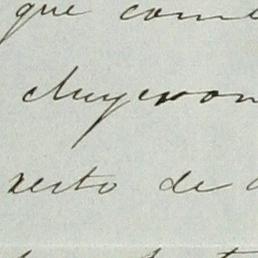 que come
cluyeron
xesto de